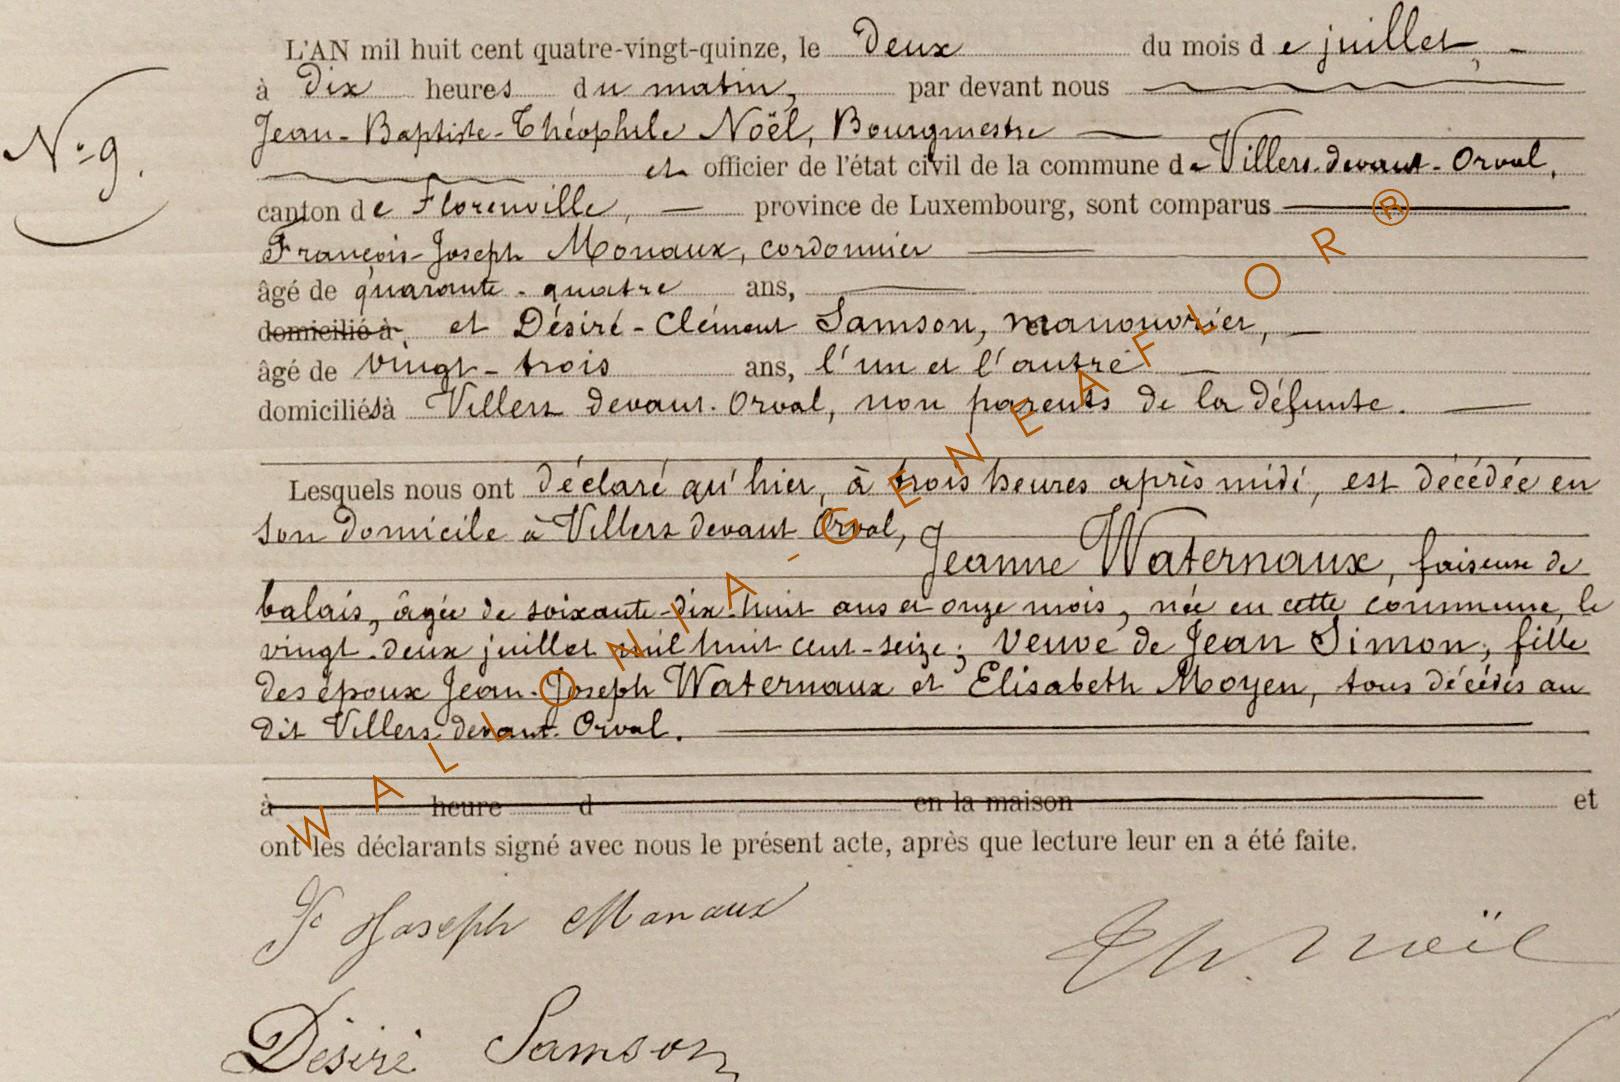 L'AN mil huit cent quatre-vingt-quinze, le deux du mois de juillet,
à dix heures du matin, par devant nous
N° 9.
Jean-Baptiste-Théophile Noël, Bourgmestre
et officier de l'état civil de la commune de Villers-devant-Orval,
canton de Florenville, province de Luxembourg, sont comparus
François-Joseph Monaux, cordonnier
âgé de quarante-quatre ans,
domicilié à, et Désiré-Clément Samson, manouvrier,
âgé de vingt-trois ans, l'un et l'autre
domiciliés à Villers devant-Orval, non parents de la défunte.
Lesquels nous ont déclaré qu'hier, à trois heures après midi, est décédée en
son domicile à Villers devant Orval,
Jeanne Waternaux, faiseuse de
balais, âgée de soixante-dix-huit ans et onze mois, née en cette commune, le
vingt-deux juillet mil huit cent-seize; Veuve de Jean Simon, fille
des époux Jean-Joseph Waternaux et Elisabeth Moyen, tous décédés au
dit Villers devant-Orval.
à heure d en la maison et
ont les déclarants signé avec nous le présent acte, après que lecture leur en a été faite.
Joseph Manaux
Th. Noël
Désiré Samson
WALLONIA-GENEAFLOR®